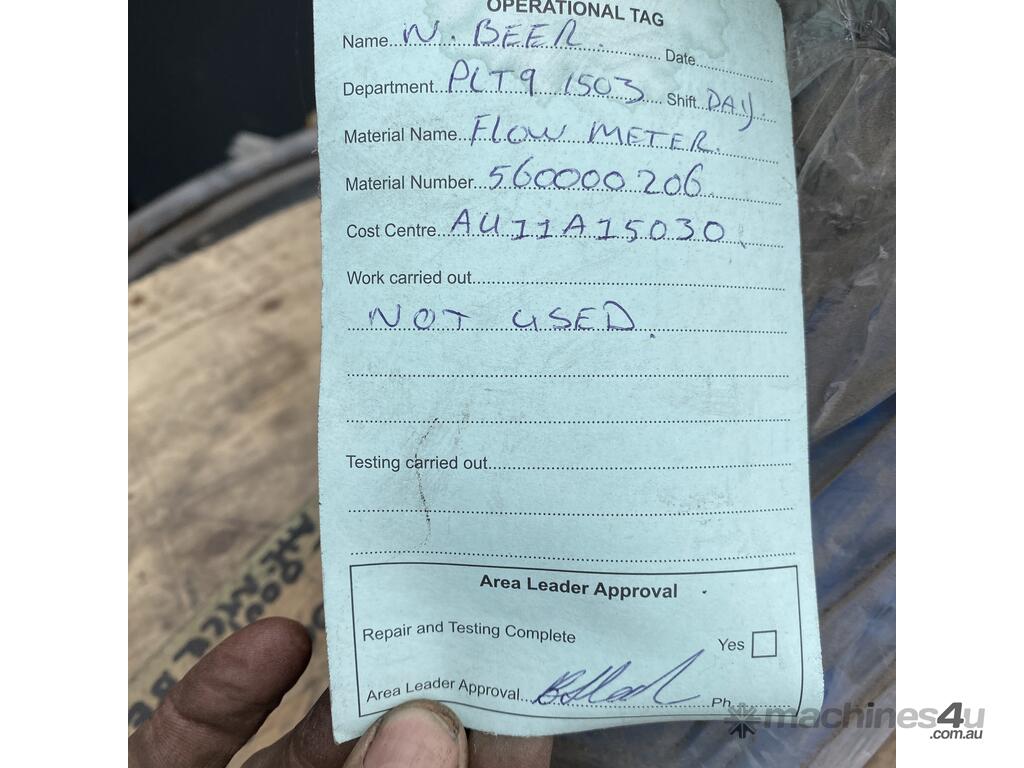 OPERATIONAL TAG
Name...N. BEER. Date...
Department...PLT9 1503... Shift...DAY.
Material Name...FLOW METER.
Material Number...560000206
Cost Centre...AU11A15030
Work carried out...
NOT USED.
Testing carried out...
Area Leader Approval
Repair and Testing Complete Yes
Area Leader Approval... Ph...
machines4u
.com.au